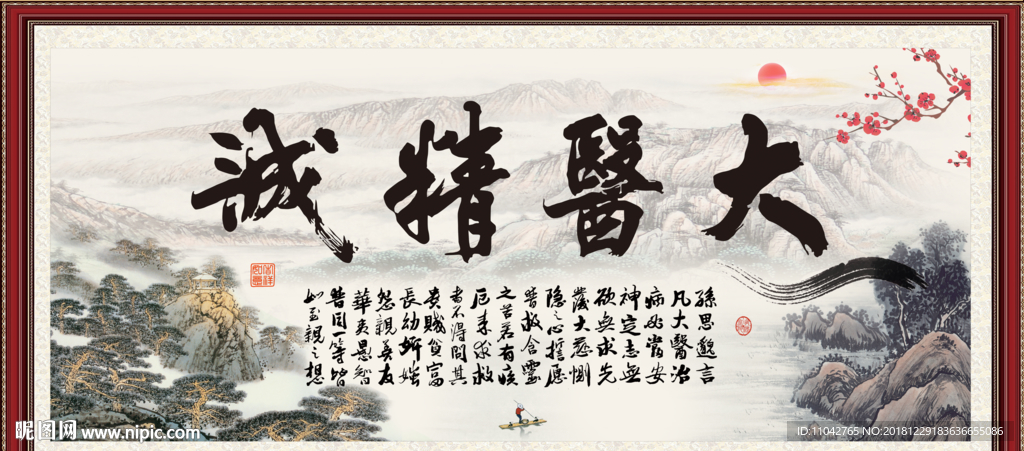 大醫精誠
孫思邈言
凡大醫治
病必當安
神定志無
欲無求先
發大慈惻
隱之心誓愿
普救含靈
之苦若有疾
厄来求救
者不得問其
貴賤貧富
長幼妍媸
怨親善友
華夷愚智
普同一等皆
如至親之想
昵图网 www.nipic.com
ID:11042765 NO:20181229183636655086